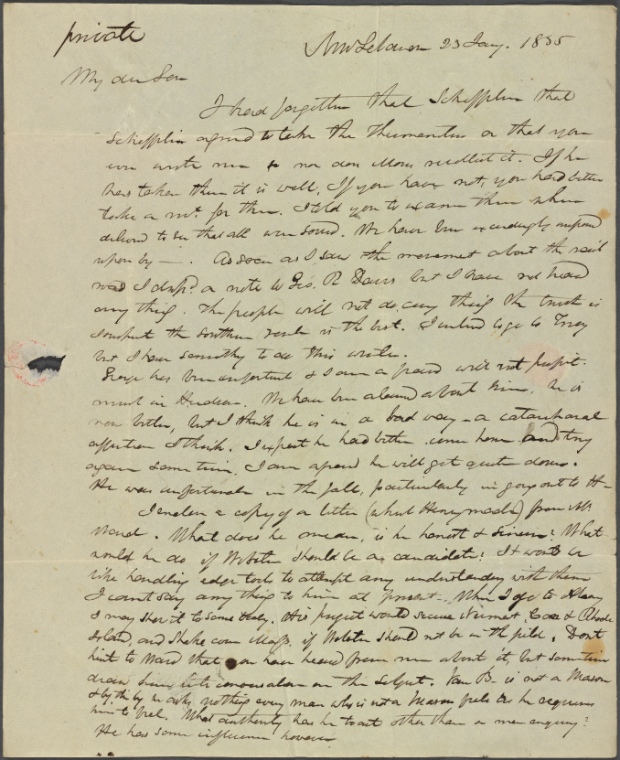 private
New Lebanon 23 Jany. 1835
My dear Son
I had forgotten that Schefflin that
Schefflin agreed to take the or that you
ever wrote me nor does Moses recollect it. If he
has taken them it is well. If you have not, you had better
take a for them. I told you to examine them when
delivered to see that all were sound. We have been exceedingly imposed
upon by —. As soon as I saw the movement about the rail
road I dropd. a note to Geo. R Davis but I have not heard
any thing. The people will not do any thing the truth is
I suspect the southern route is the best. I intend to go to Troy
but I have something to do this winter.
George has been unfortunate & I am afraid will not
in Hudson. We have been alarmed about him. He is
now better, but I think he is in a bad way - a catarrhal
affection I think. I expect he had better come home and try
again some time, I am afraid he will get quite down.
He was unfortunate in the fall, particularly in going out to H-
I enclose a copy of a letter (which Henry made) from
Ward. What does he mean, is he honest & sincere? What
would he do if Webster should be a candidate? It would be
like handling edge tools to attempt any understanding with them
I cant say any thing to him at present. When I go to Albany
I may shew it to some body. His project would secure Vermont, Con & Rhode
Island, and shake even Mass. if Webster should not be in the field. Dont
hint to Ward that you have heard from me about it, but sometime
draw some little conversation on the subject. Van B- is not a Mason
& by the by he asks nothing every man who is not a Mason feels as he requires
him to feel. What authority has he to act other than a mere enquiry?
He has some influence however